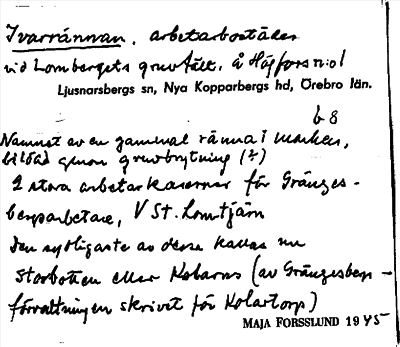 Ivarrännan, arbetarbostäder
vid Lombergets gruvfält, å Högfors n:o1
Ljusnarsbergs sn, Nya Kopparbergs hd, Örebro län.
b 8
Namnet av en gammal ränna i marken,
bildad genom gruvbrytning (?)
2 stora arbetarkaserner för Gränges-
bergsarbetare, V St. Lomtjärn
Den sydligaste av dessa kallas nu
Storbotten eller Kolarns (av Grängesberg-
förvaltningen skrivet för Kolartorp)
MAJA FORSSLUND 1945